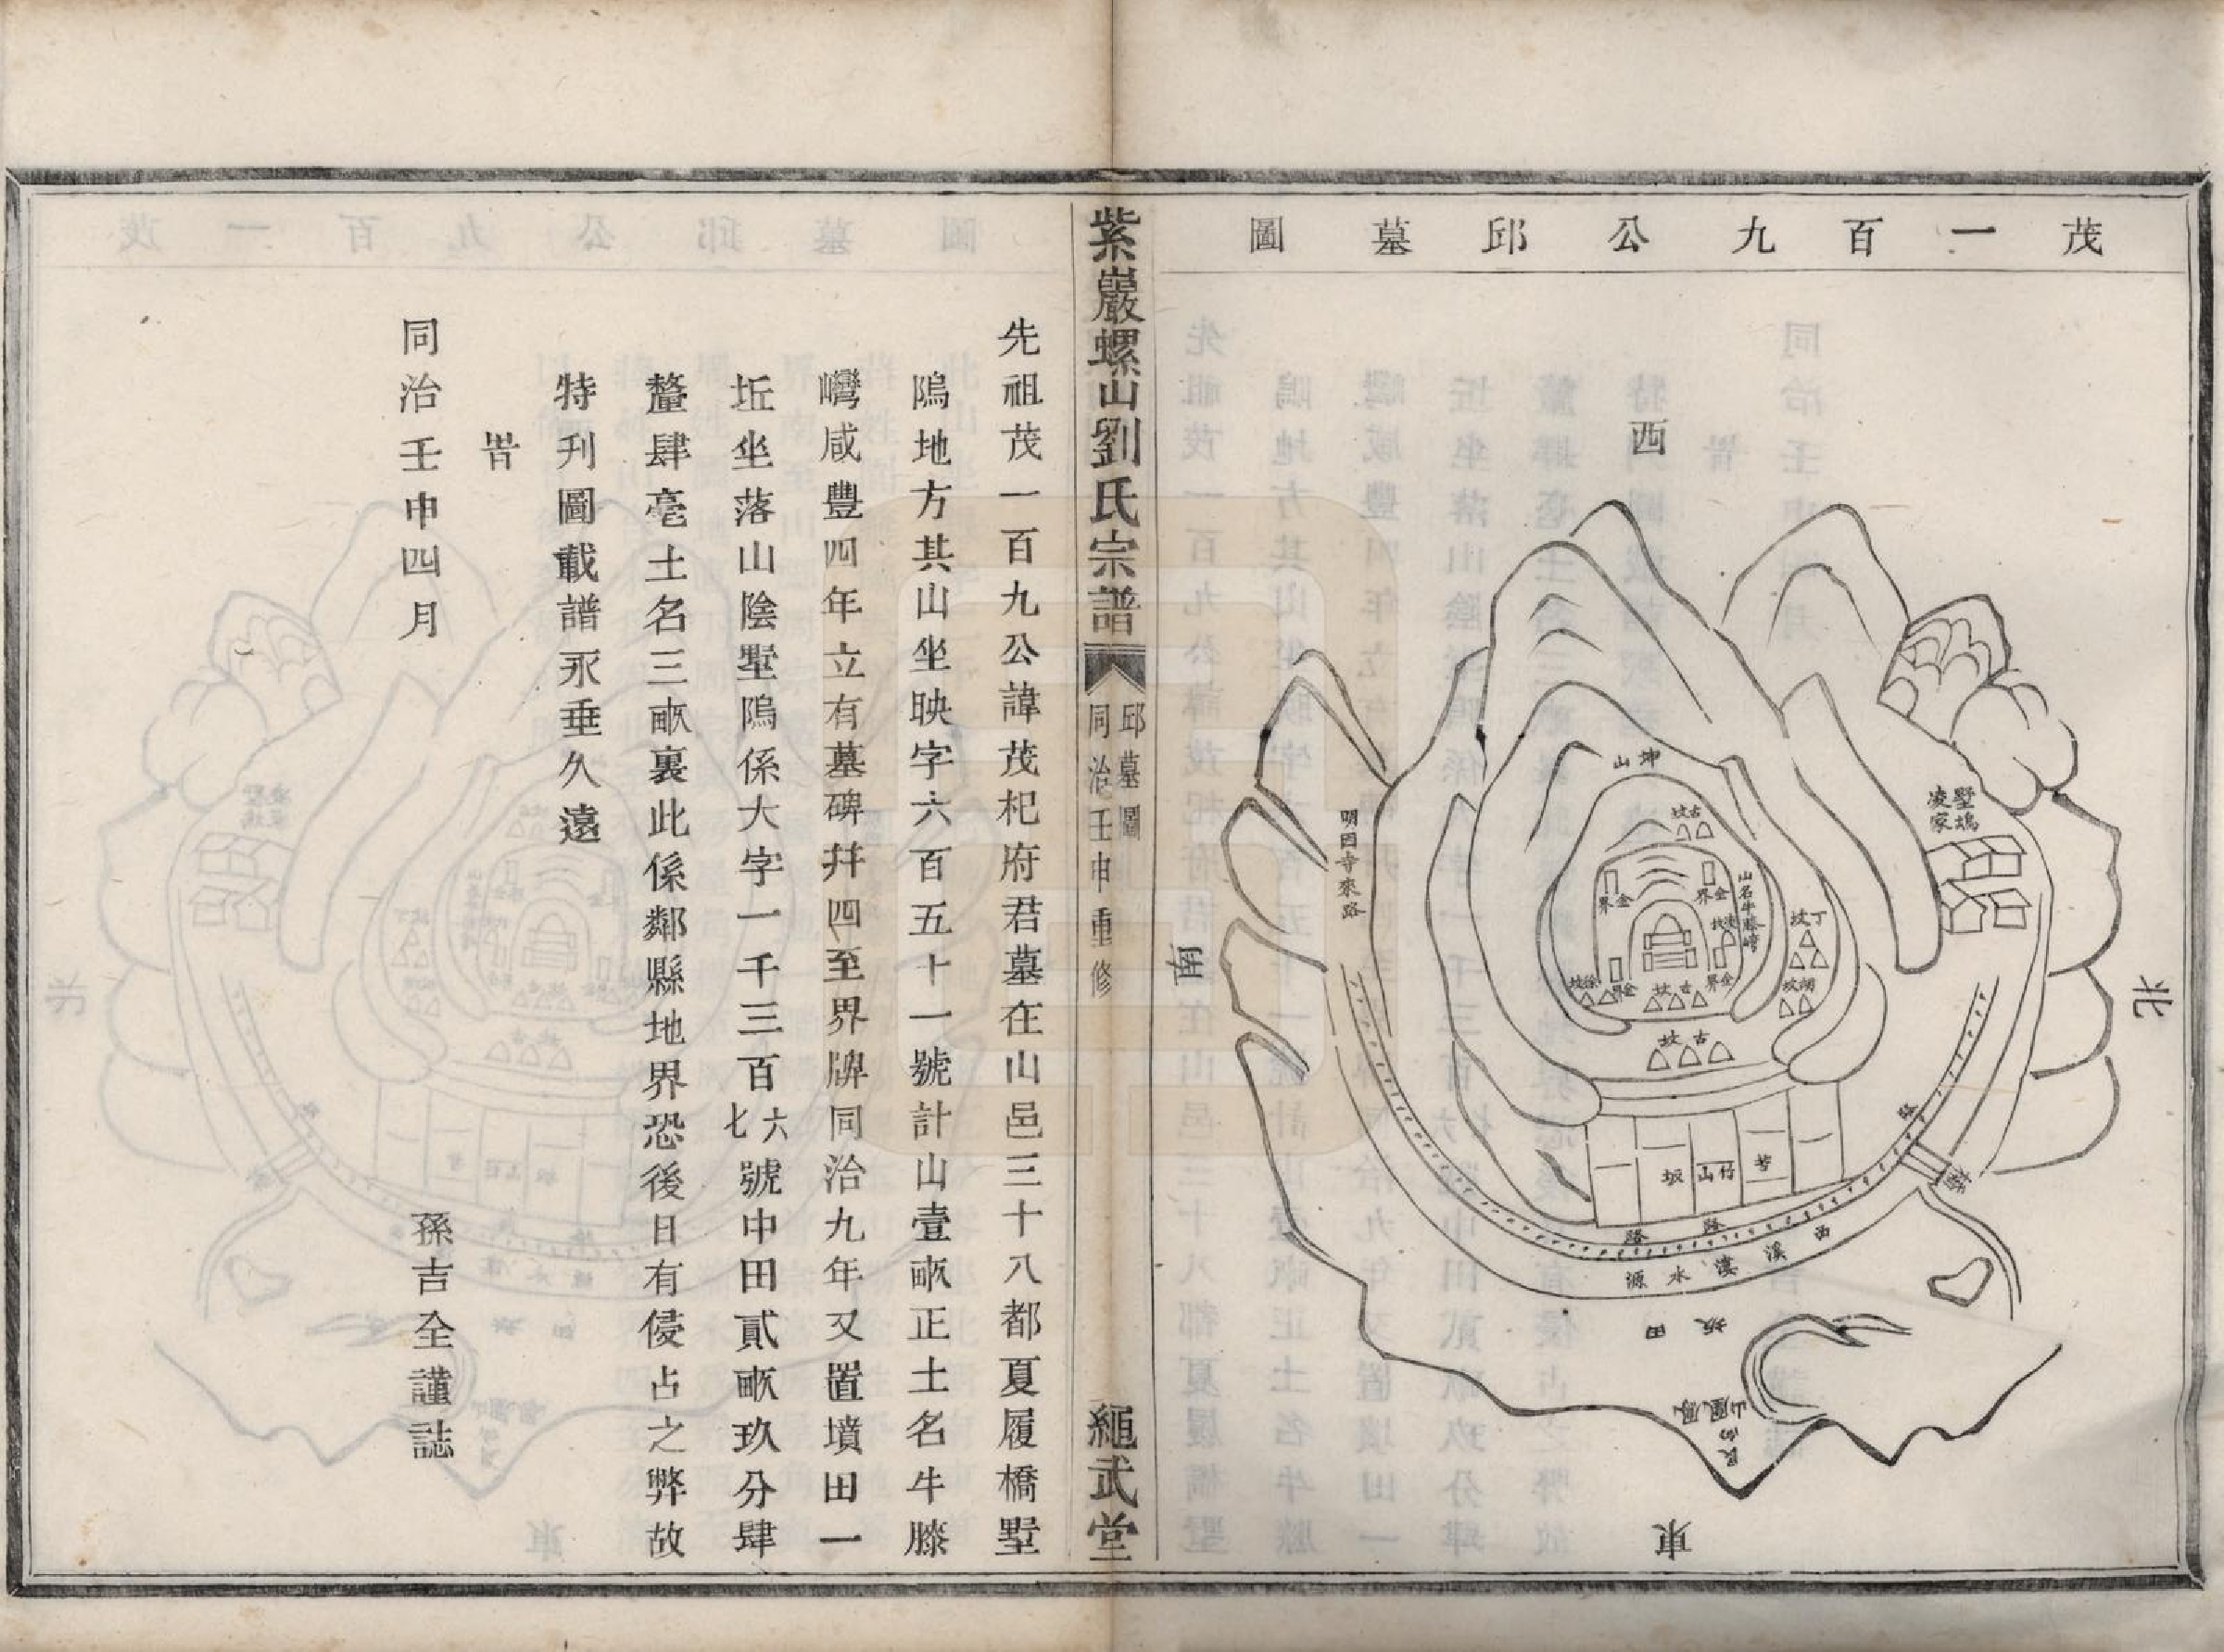 茂一百九公邱墓圖
西
北
南
東
坤山
古坟
金界
金界
山名牛膝嶹
丁坟
胡坟
徐坟
金界
古坟
金界
古坟
墅塢
凌家
明因寺來路
竹山
坂
路
橋
路
路
西溪凄水源
坂田
鳳凰山
紫巖螺山劉氏宗譜
邱墓圖
同治壬申重修
繩武堂
先祖茂一百九公諱茂杞府君墓在山邑三十八都夏履橋墅
隖地方其山坐映字六百五十一號計山壹畝正土名牛膝
巒咸豐四年立有墓碑幷四至界牌同治九年又置墳田一
坵坐落山陰墅隖係大字一千三百六七號中田貳畝玖分肆
釐肆亳土名三畝裏此係鄰縣地界恐後日有侵占之弊故
特刋圖載譜永垂久遠
旹
同治壬申四月
孫吉全謹誌